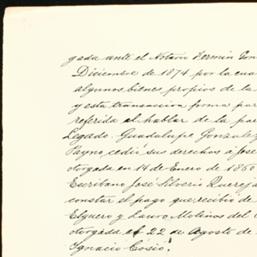 gada ante el Notario Fermin Gon
Diciembre de 1874 por la cua
algunos bienes propios de la
y esta transaccion forma par
referida al hablar de la par
Legado. Guadalupe Gonzalez
Payno, cedió sus derechos á José
otorgada en 14 de Enero de 186
Escribano José Silverio Querej
constar el pago que recibió de
Elguero y Lauro Molinos del C
otorgada el 22 de Agosto de
Ignacio Cosio.